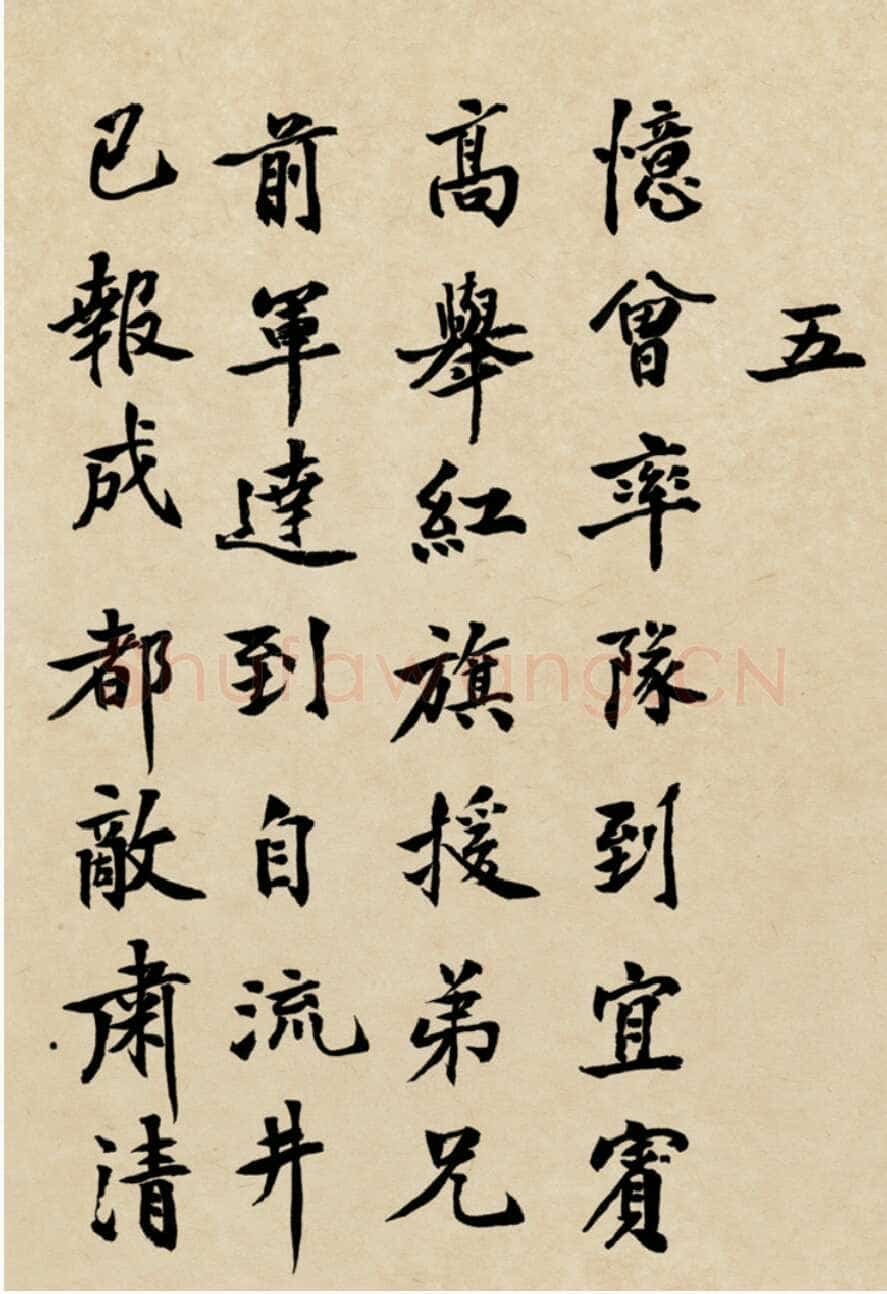 五
憶曾率隊到宜賓
高舉紅旗援弟兄
前軍達到自流井
已報成都敵肅清
shufawang.CN